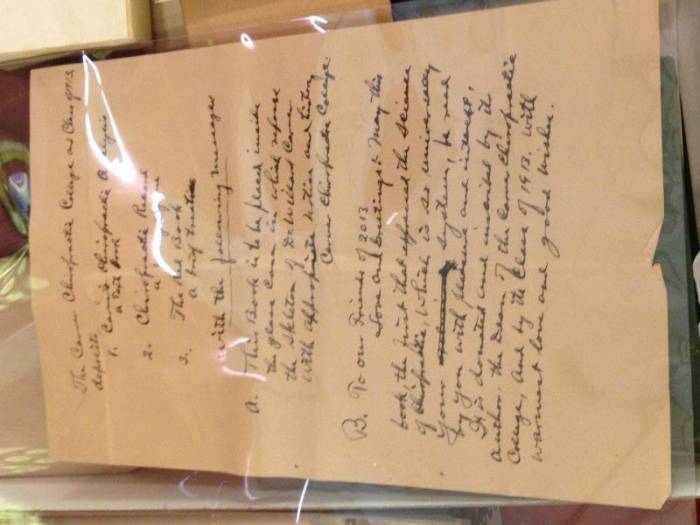 The Carver Chiropractic College and Class of 1913
deposits
1. Carver's Chiropractic Analysis
a Text Book
2. Chiropractic Record
a
3. The Red Book
a Brief Treatise
with the following messages
A. This Book is to be placed inside
the glass case in which repose
the skeleton of Dr. Willard Carver
with appropriate notice and listing
Carver Chiropractic College
B. To our Friends of 2013
Love and Greetings: May this
book, the first that defined the science
of Chiropractic, which is so universally
your system, be read
by you with pleasure and interest.
It is donated and inscribed by its
author, the Dean of the Carver Chiropractic
College, and by the Class of 1913. With
warmest love and good wishes.